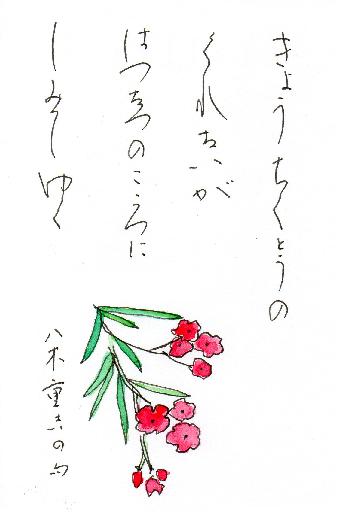 きょうちくとうの
くれないが
はつなつのこころに
しみてゆく
八木重吉の